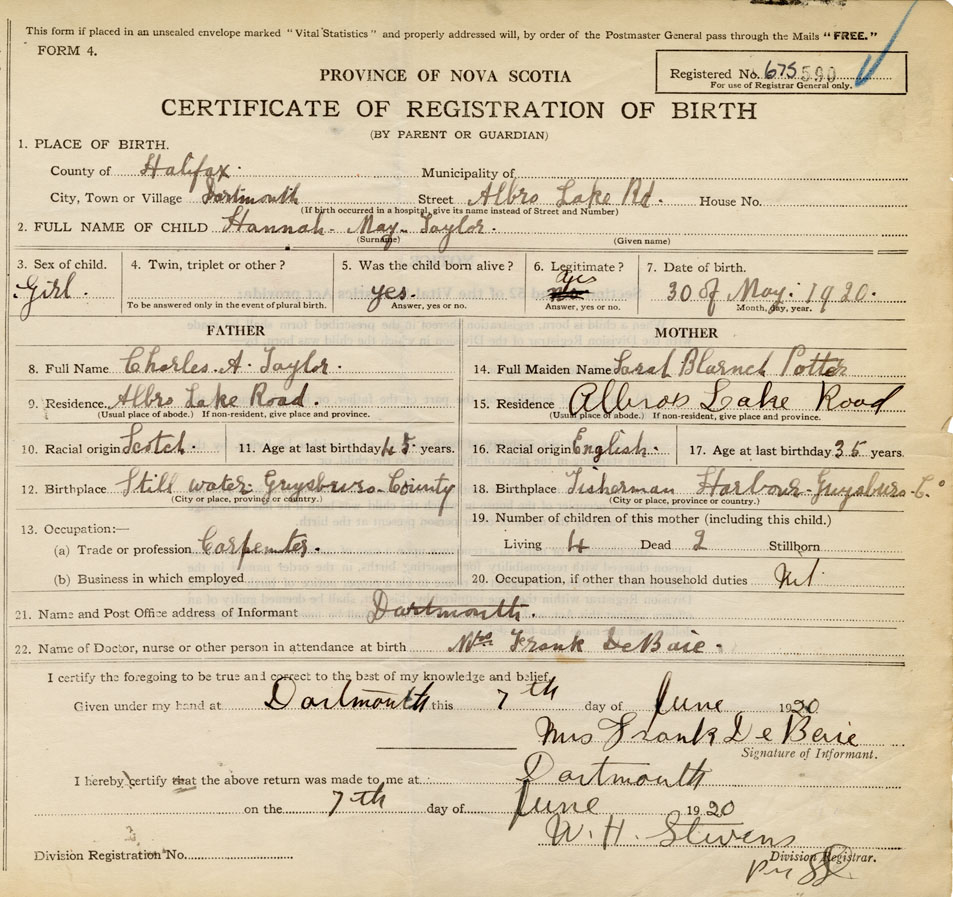 This form if placed in an unsealed envelope marked "Vital Statistics" and properly addressed will, by order of the Postmaster General pass through the Mails "FREE."
FORM 4.
PROVINCE OF NOVA SCOTIA
Registered No. 675590
For use of Registrar General only.
CERTIFICATE OF REGISTRATION OF BIRTH
(BY PARENT OR GUARDIAN)
1. PLACE OF BIRTH.
County of Halifax. Municipality of
City, Town or Village Dartmouth Street Albro Lake Rd. House No.
(If birth occurred in a hospital, give its name instead of Street and Number)
2. FULL NAME OF CHILD Hannah May Taylor.
(Surname) (Given name)
3. Sex of child. 4. Twin, triplet or other? 5. Was the child born alive? 6. Legitimate? 7. Date of birth.
Girl. yes. yes 30 of May. 1920.
To be answered only in the event of plural birth. Answer, yes or no. Answer, yes or no. Month, day, year.
FATHER MOTHER
8. Full Name Charles. A. Taylor. 14. Full Maiden Name Sarah Blanch Potter
9. Residence. Albro Lake Road. 15. Residence Albros Lake Road
(Usual place of abode.) If non-resident, give place and province. (Usual place of abode.) If non-resident, give place and province.
10. Racial origin Scotch. 11. Age at last birthday 45 years. 16. Racial origin English. 17. Age at last birthday 35 years.
12. Birthplace Still water Guysburo County 18. Birthplace Fisherman Harbour Guysburo Co
(City or place, province or country.) (City or place, province or country.)
13. Occupation:— 19. Number of children of this mother (including this child.)
(a) Trade or profession Carpenter. Living 4 Dead 2 Stillborn
(b) Business in which employed 20. Occupation, if other than household duties
21. Name and Post Office address of Informant Dartmouth.
22. Name of Doctor, nurse or other person in attendance at birth Mrs Frank DeBaie.
I certify the foregoing to be true and correct to the best of my knowledge and belief.
Given under my hand at Dartmouth this 7th day of June 1920
Mrs Frank De Baie
Signature of Informant.
I hereby certify that the above return was made to me at Dartmouth
on the 7th day of June 1920
W. H. Stevens
Division Registration No. Division Registrar.